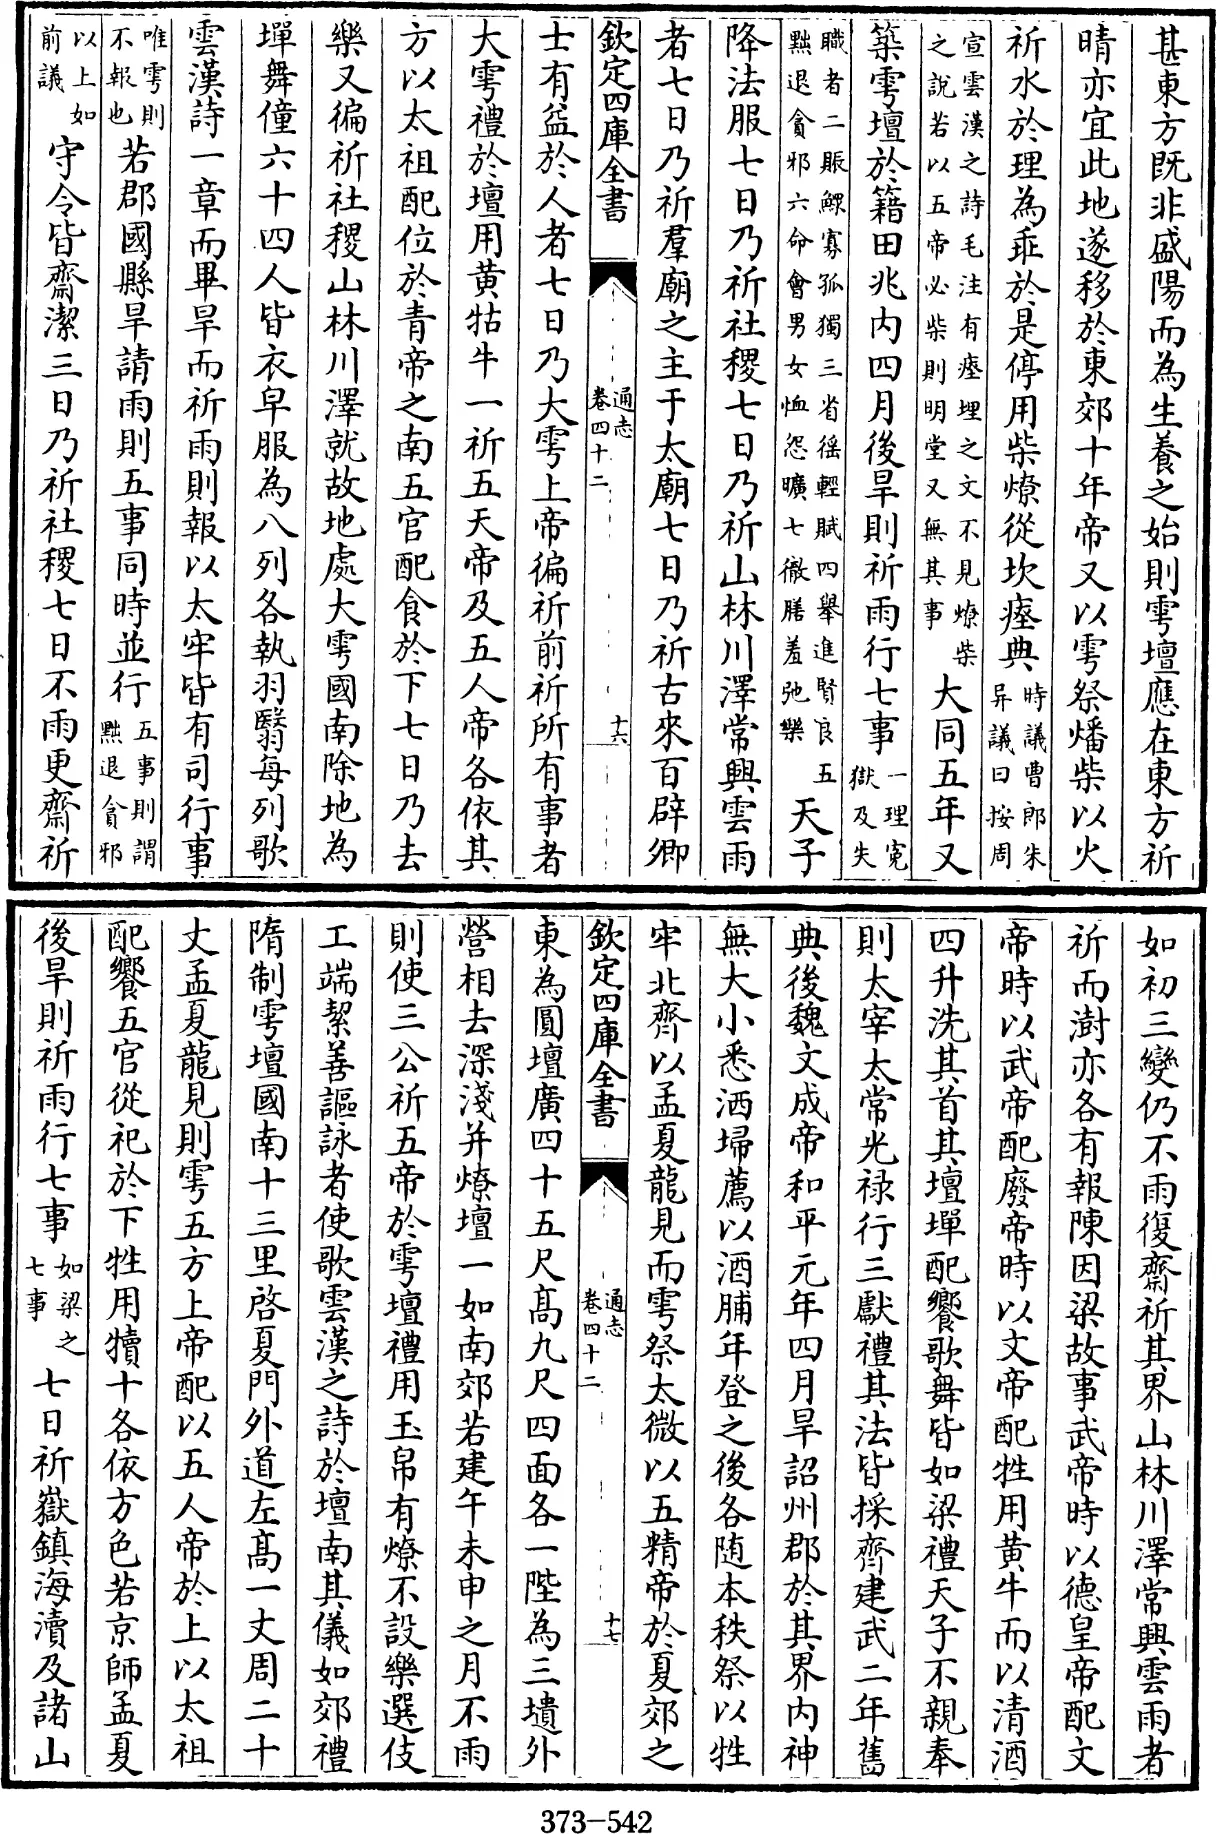 甚東方既非盛陽而為生養之始則雩壇應在東方祈
晴亦宜此地遂移於東郊十年帝又以雩祭燔柴以火
祈水於理為乖於是停用柴燎從坎瘞典時議曹郎朱异議曰按周
宣雲漢之詩毛注有瘞埋之文不見燎柴之說若以五帝必柴則明堂又無其事大同五年又
築雩壇於籍田兆内四月後旱則祈雨行七事一理寃獄及失
職者二賑鰥寡孤獨三省徭輕賦四舉進賢良五黜退貪邪六命會男女恤怨曠七徹膳羞弛樂天子
降法服七日乃祈社稷七日乃祈山林川澤常興雲雨
者七日乃祈羣廟之主于太廟七日乃祈古來百辟卿
欽定四庫全書
通志
卷四十二
十六
士有益於人者七日乃大雩上帝徧祈前祈所有事者
大雩禮於壇用黄牯牛一祈五天帝及五人帝各依其
方以太祖配位於青帝之南五官配食於下七日乃去
樂又徧祈社稷山林川澤就故地處大雩國南除地為
墠舞僮六十四人皆衣皁服為八列各執羽翳每列歌
雲漢詩一章而畢旱而祈雨則報以太牢皆有司行事
唯雩則不報也若郡國縣旱請雨則五事同時並行五事則謂黜退貪邪
以上如前議守令皆齋潔三日乃祈社稷七日不雨更齋祈
如初三變仍不雨復齋祈其界山林川澤常興雲雨者
祈而澍亦各有報陳因梁故事武帝時以德皇帝配文
帝時以武帝配廢帝時以文帝配牲用黄牛而以清酒
四升洗其首其壇墠配饗歌舞皆如梁禮天子不親奉
則太宰太常光禄行三獻禮其法皆採齊建武二年舊
典後魏文成帝和平元年四月旱詔州郡於其界内神
無大小悉洒埽薦以酒脯年登之後各随本秩祭以牲
牢北齊以孟夏龍見而雩祭太微以五精帝於夏郊之
欽定四庫全書
通志
卷四十二
十七
東為圓壇廣四十五尺髙九尺四面各一陛為三壝外
營相去深淺并燎壇一如南郊若建午未申之月不雨
則使三公祈五帝於雩壇禮用玉帛有燎不設樂選伎
工端絜善謳詠者使歌雲漢之詩於壇南其儀如郊禮
隋制雩壇國南十三里啓夏門外道左髙一丈周二十
丈孟夏龍見則雩五方上帝配以五人帝於上以太祖
配饗五官從祀於下牲用犢十各依方色若京師孟夏
後旱則祈雨行七事如梁之七事七日祈嶽鎮海瀆及諸山
373-542